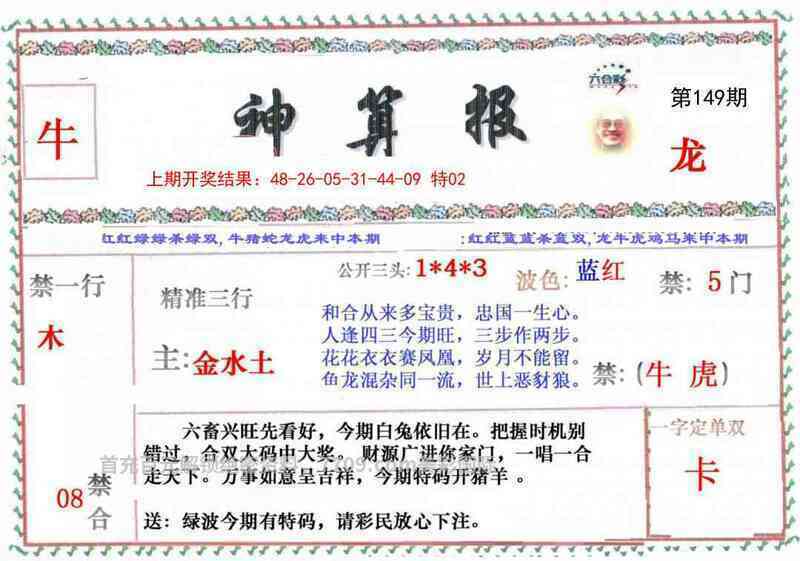 六合彩
第149期
牛
神算报
龙
上期开奖结果：48-26-05-31-44-09 特02
红红绿绿杀绿双，牛猪蛇龙虎来中本期
：红红蓝蓝杀蓝双，龙牛虎鸡马来中本期
禁一行
木
精准三行
主：金水土
公开三头：1*4*3
波色：蓝红
禁：5门
和合从来多宝贵，忠国一生心。
人逢四三今期旺，三步作两步。
花花衣衣赛凤凰，岁月不能留。
鱼龙混杂同一流，世上恶豺狼。
禁：(牛 虎)
08
禁合
六畜兴旺先看好，今期白兔依旧在。把握时机别
错过，合双大码中大奖。 财源广进你家门，一唱一合
走天下。万事如意呈吉祥，今期特码开猪羊 。
送：绿波今期有特码，请彩民放心下注。
一字定单双
卡